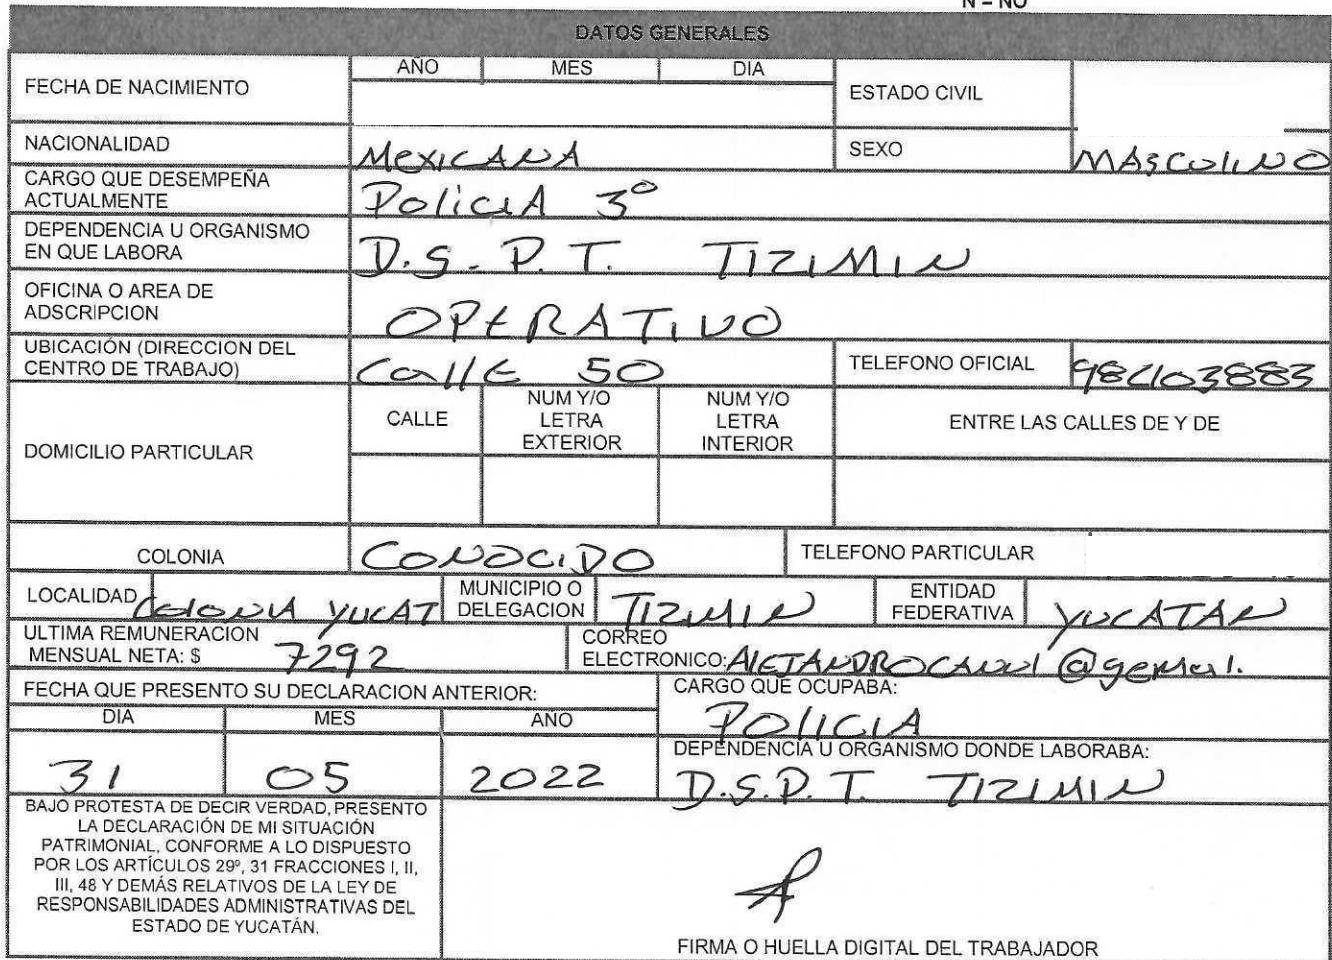 N = NO
DATOS GENERALES
FECHA DE NACIMIENTO
AÑO MES DIA
ESTADO CIVIL
NACIONALIDAD MexicANA SEXO MASCULINO
CARGO QUE DESEMPEÑA
ACTUALMENTE
PoliciA 3º
DEPENDENCIA U ORGANISMO
EN QUE LABORA
D.S.P.T. TIZIMIN
OFICINA O AREA DE
ADSCRIPCION
OPERATIVO
UBICACIÓN (DIRECCION DEL
CENTRO DE TRABAJO)
CallE 50
TELEFONO OFICIAL
DOMICILIO PARTICULAR
CALLE
NUM Y/O
LETRA
EXTERIOR
NUM Y/O
LETRA
INTERIOR
ENTRE LAS CALLES DE Y DE
COLONIA CONOCIDO TELEFONO PARTICULAR
LOCALIDAD ColoniA YUCAT
MUNICIPIO O
DELEGACION
TIZIMIN
ENTIDAD
FEDERATIVA
YUCATAN
ULTIMA REMUNERACION
MENSUAL NETA: $ 7292
CORREO
ELECTRONICO:
FECHA QUE PRESENTO SU DECLARACION ANTERIOR:
DIA MES AÑO
31 05 2022
CARGO QUE OCUPABA:
POliCIA
DEPENDENCIA U ORGANISMO DONDE LABORABA:
D.S.P.T. TIZIMIN
BAJO PROTESTA DE DECIR VERDAD, PRESENTO
LA DECLARACIÓN DE MI SITUACIÓN
PATRIMONIAL, CONFORME A LO DISPUESTO
POR LOS ARTÍCULOS 29º, 31 FRACCIONES I, II,
III, 48 Y DEMÁS RELATIVOS DE LA LEY DE
RESPONSABILIDADES ADMINISTRATIVAS DEL
ESTADO DE YUCATÁN.
FIRMA O HUELLA DIGITAL DEL TRABAJADOR